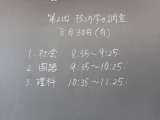 第2回 校内学力調査
8月30日(月)
1. 社会 8:35〜9:25
2. 国語 9:35〜10:25
3. 理科 10:35〜11:25